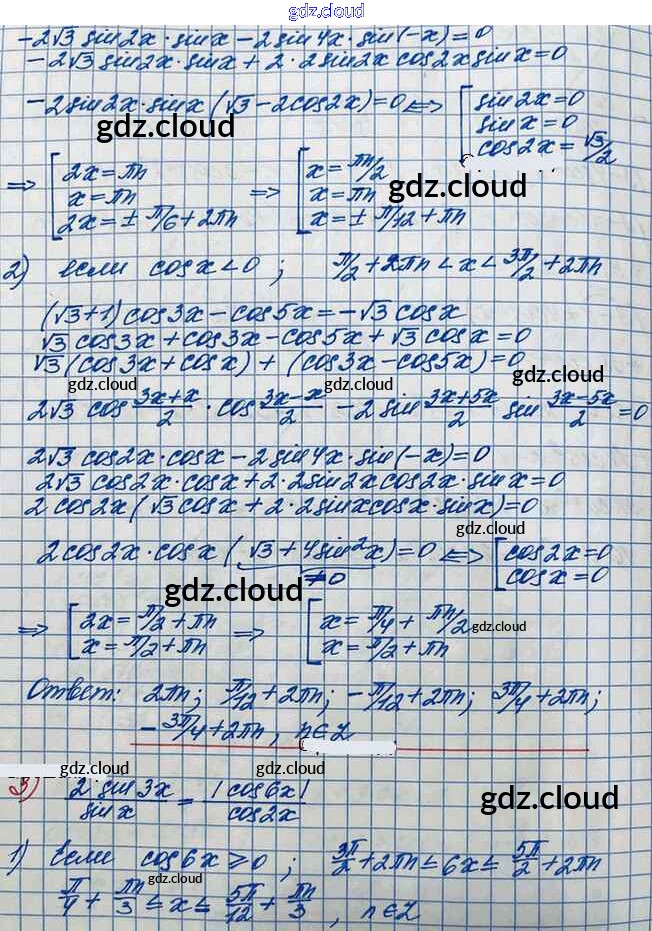 gdz.cloud
-2√3 sin2x·sinx - 2sin4x·sin(-x)=0
-2√3 sin2x·sinx + 2·2sin2x cos2x sinx=0
-2sin2x·sinx(√3-2cos2x)=0 <=> [sin2x=0
sinx=0
cos2x=√3/2
gdz.cloud
=> [2x=πn
x=πn
2x=±π/6+2πn
=> [x=πn/2
x=πn
x=±π/12+πn
gdz.cloud
2) если cosx<0; π/2+2πn<x<3π/2+2πn
(√3+1)cos3x-cos5x=-√3cosx
√3cos3x+cos3x-cos5x+√3cosx=0
√3(cos3x+cosx)+(cos3x-cos5x)=0
gdz.cloud gdz.cloud gdz.cloud
2√3 cos (3x+x)/2 · cos (3x-x)/2 - 2sin (3x+5x)/2 sin (3x-5x)/2 =0
2√3 cos2x·cosx-2sin4x·sin(-x)=0
2√3 cos2x·cosx+2·2sin2x cos2x·sinx=0
2cos2x(√3cosx+2·2sinxcosx·sinx)=0
gdz.cloud
2cos2x·cosx(√3+4sin²x)=0 <=> [cos2x=0
cosx=0
≠0
gdz.cloud
=> [2x=π/2+πn
x=π/2+πn
=> [x=π/4+πn/2
x=π/2+πn
gdz.cloud
Ответ: 2πn; π/12+2πn; -π/12+2πn; 3π/4+2πn;
-3π/4+2πn, n∈Z
gdz.cloud
gdz.cloud gdz.cloud
3) 2sin3x/sinx = |cos6x|/cos2x
gdz.cloud
1) Если cos6x≥0; 3π/2+2πn≤6x≤5π/2+2πn
gdz.cloud
π/4+πn/3≤x≤5π/12+πn/3, n∈Z
gdz.cloud